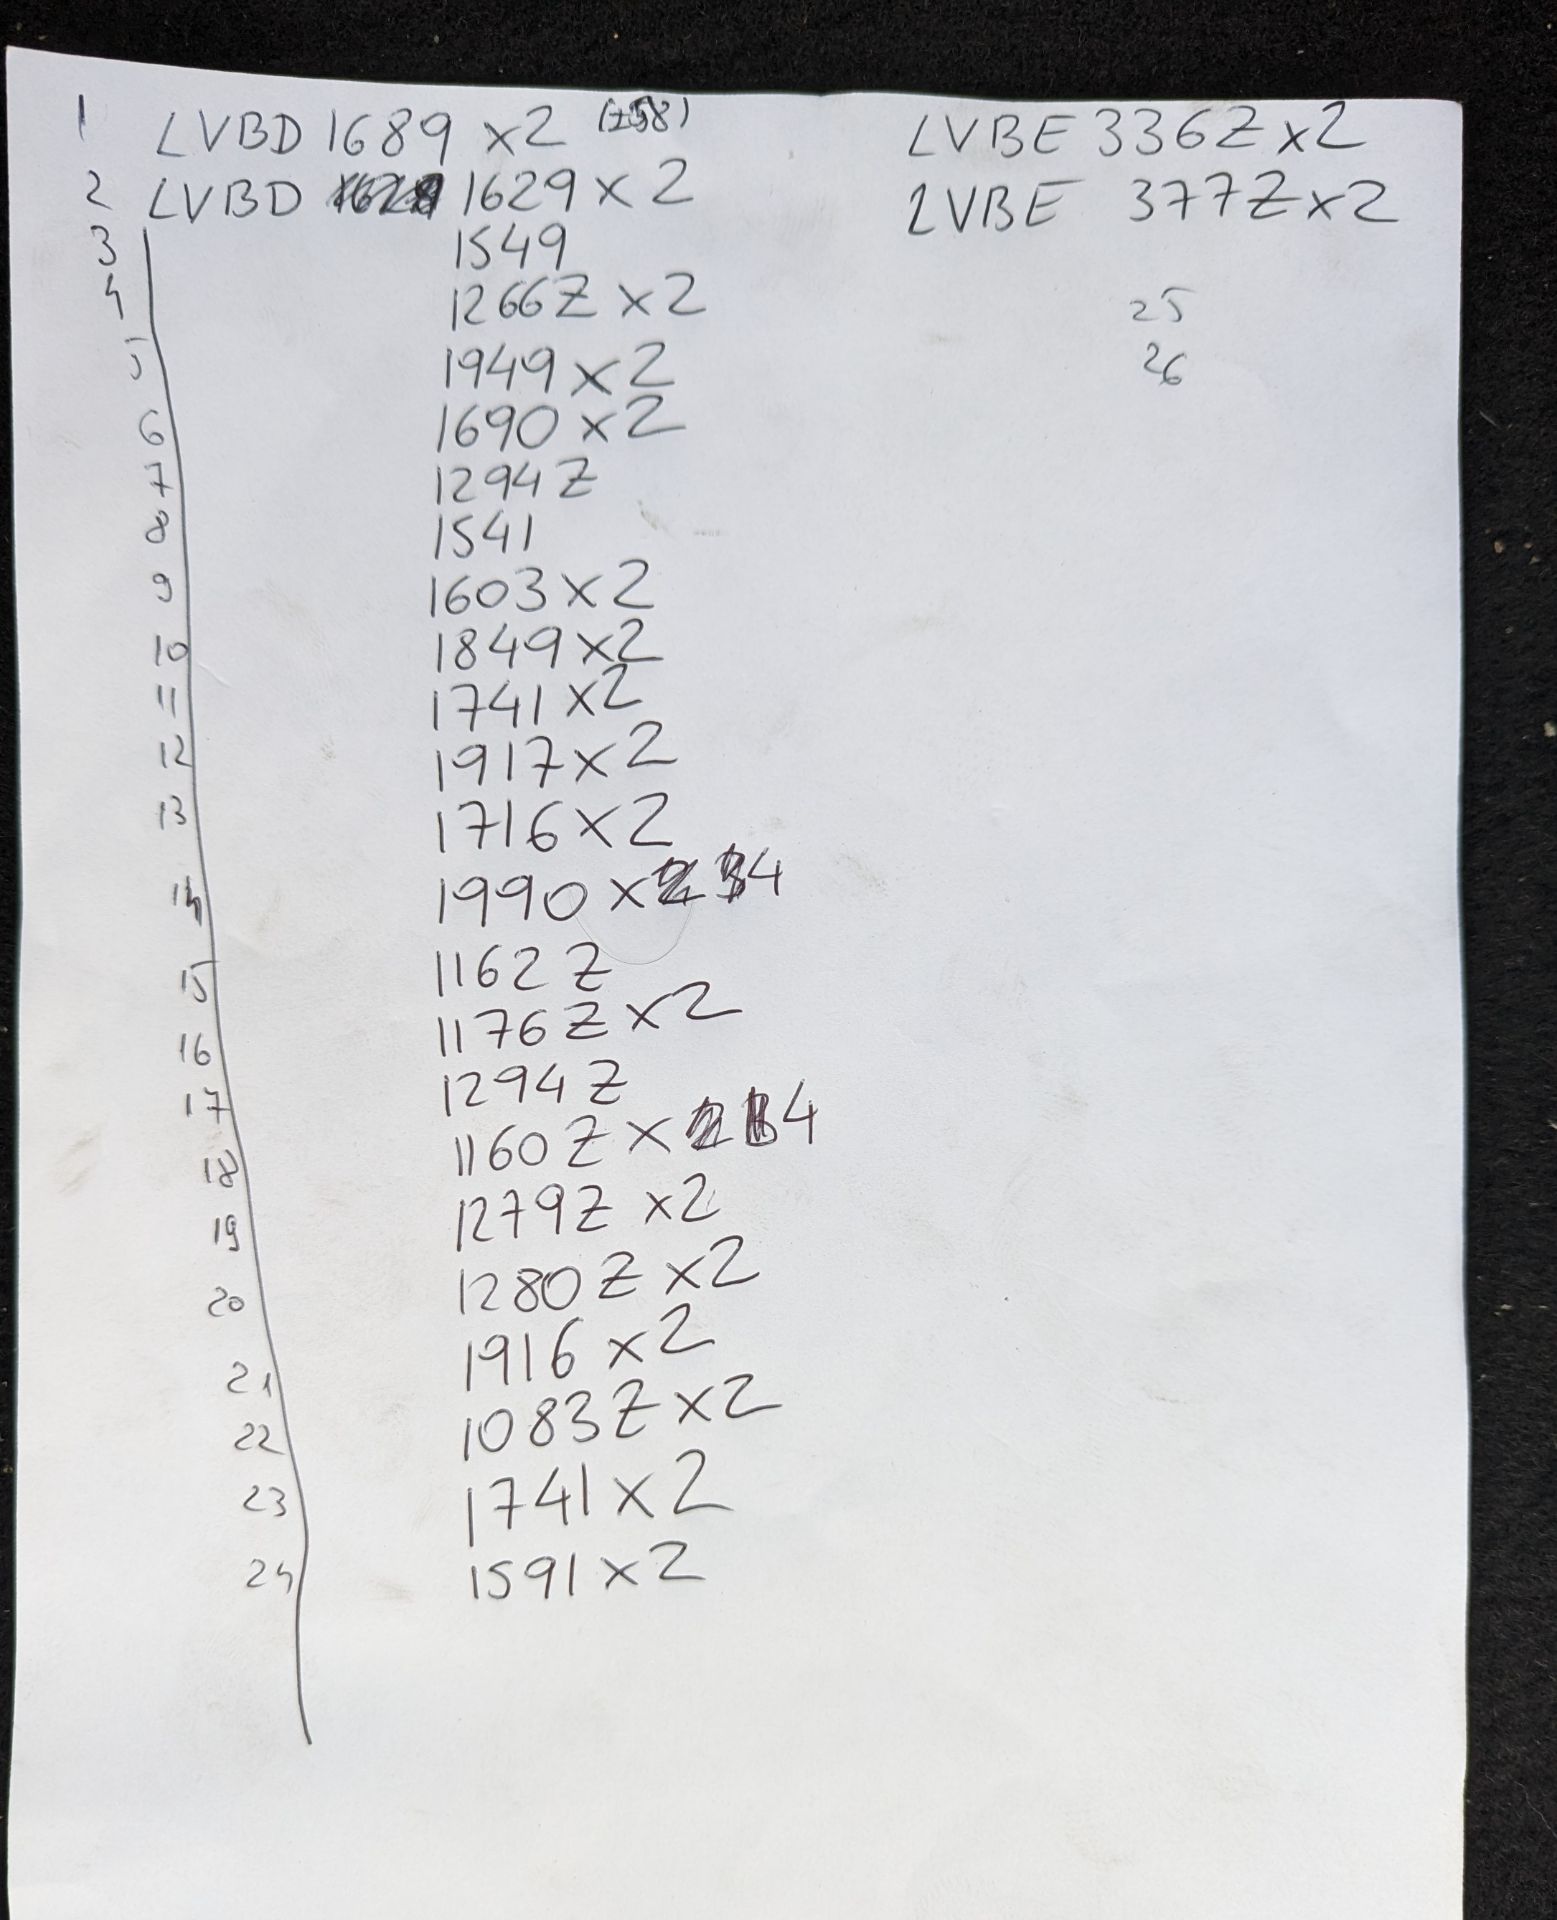 1 LVBD 1689 x2 (±58)
2 LVBD 1629 x 2
3 1549
4 1266Z x2
5 1949 x2
6 1690 x2
7 1294Z
8 1541
9 1603 x2
10 1849 x2
11 1741 x2
12 1917 x2
13 1716 x2
14 1990 x 4
15 1162 Z
16 1176Z x2
17 1294 Z
18 1160 Z x 4
19 1279Z x2
20 1280 Z x2
21 1916 x2
22 1083Z x2
23 1741 x2
24 1591 x2
LVBE 336Z x2
LVBE 377Z x2
25
26